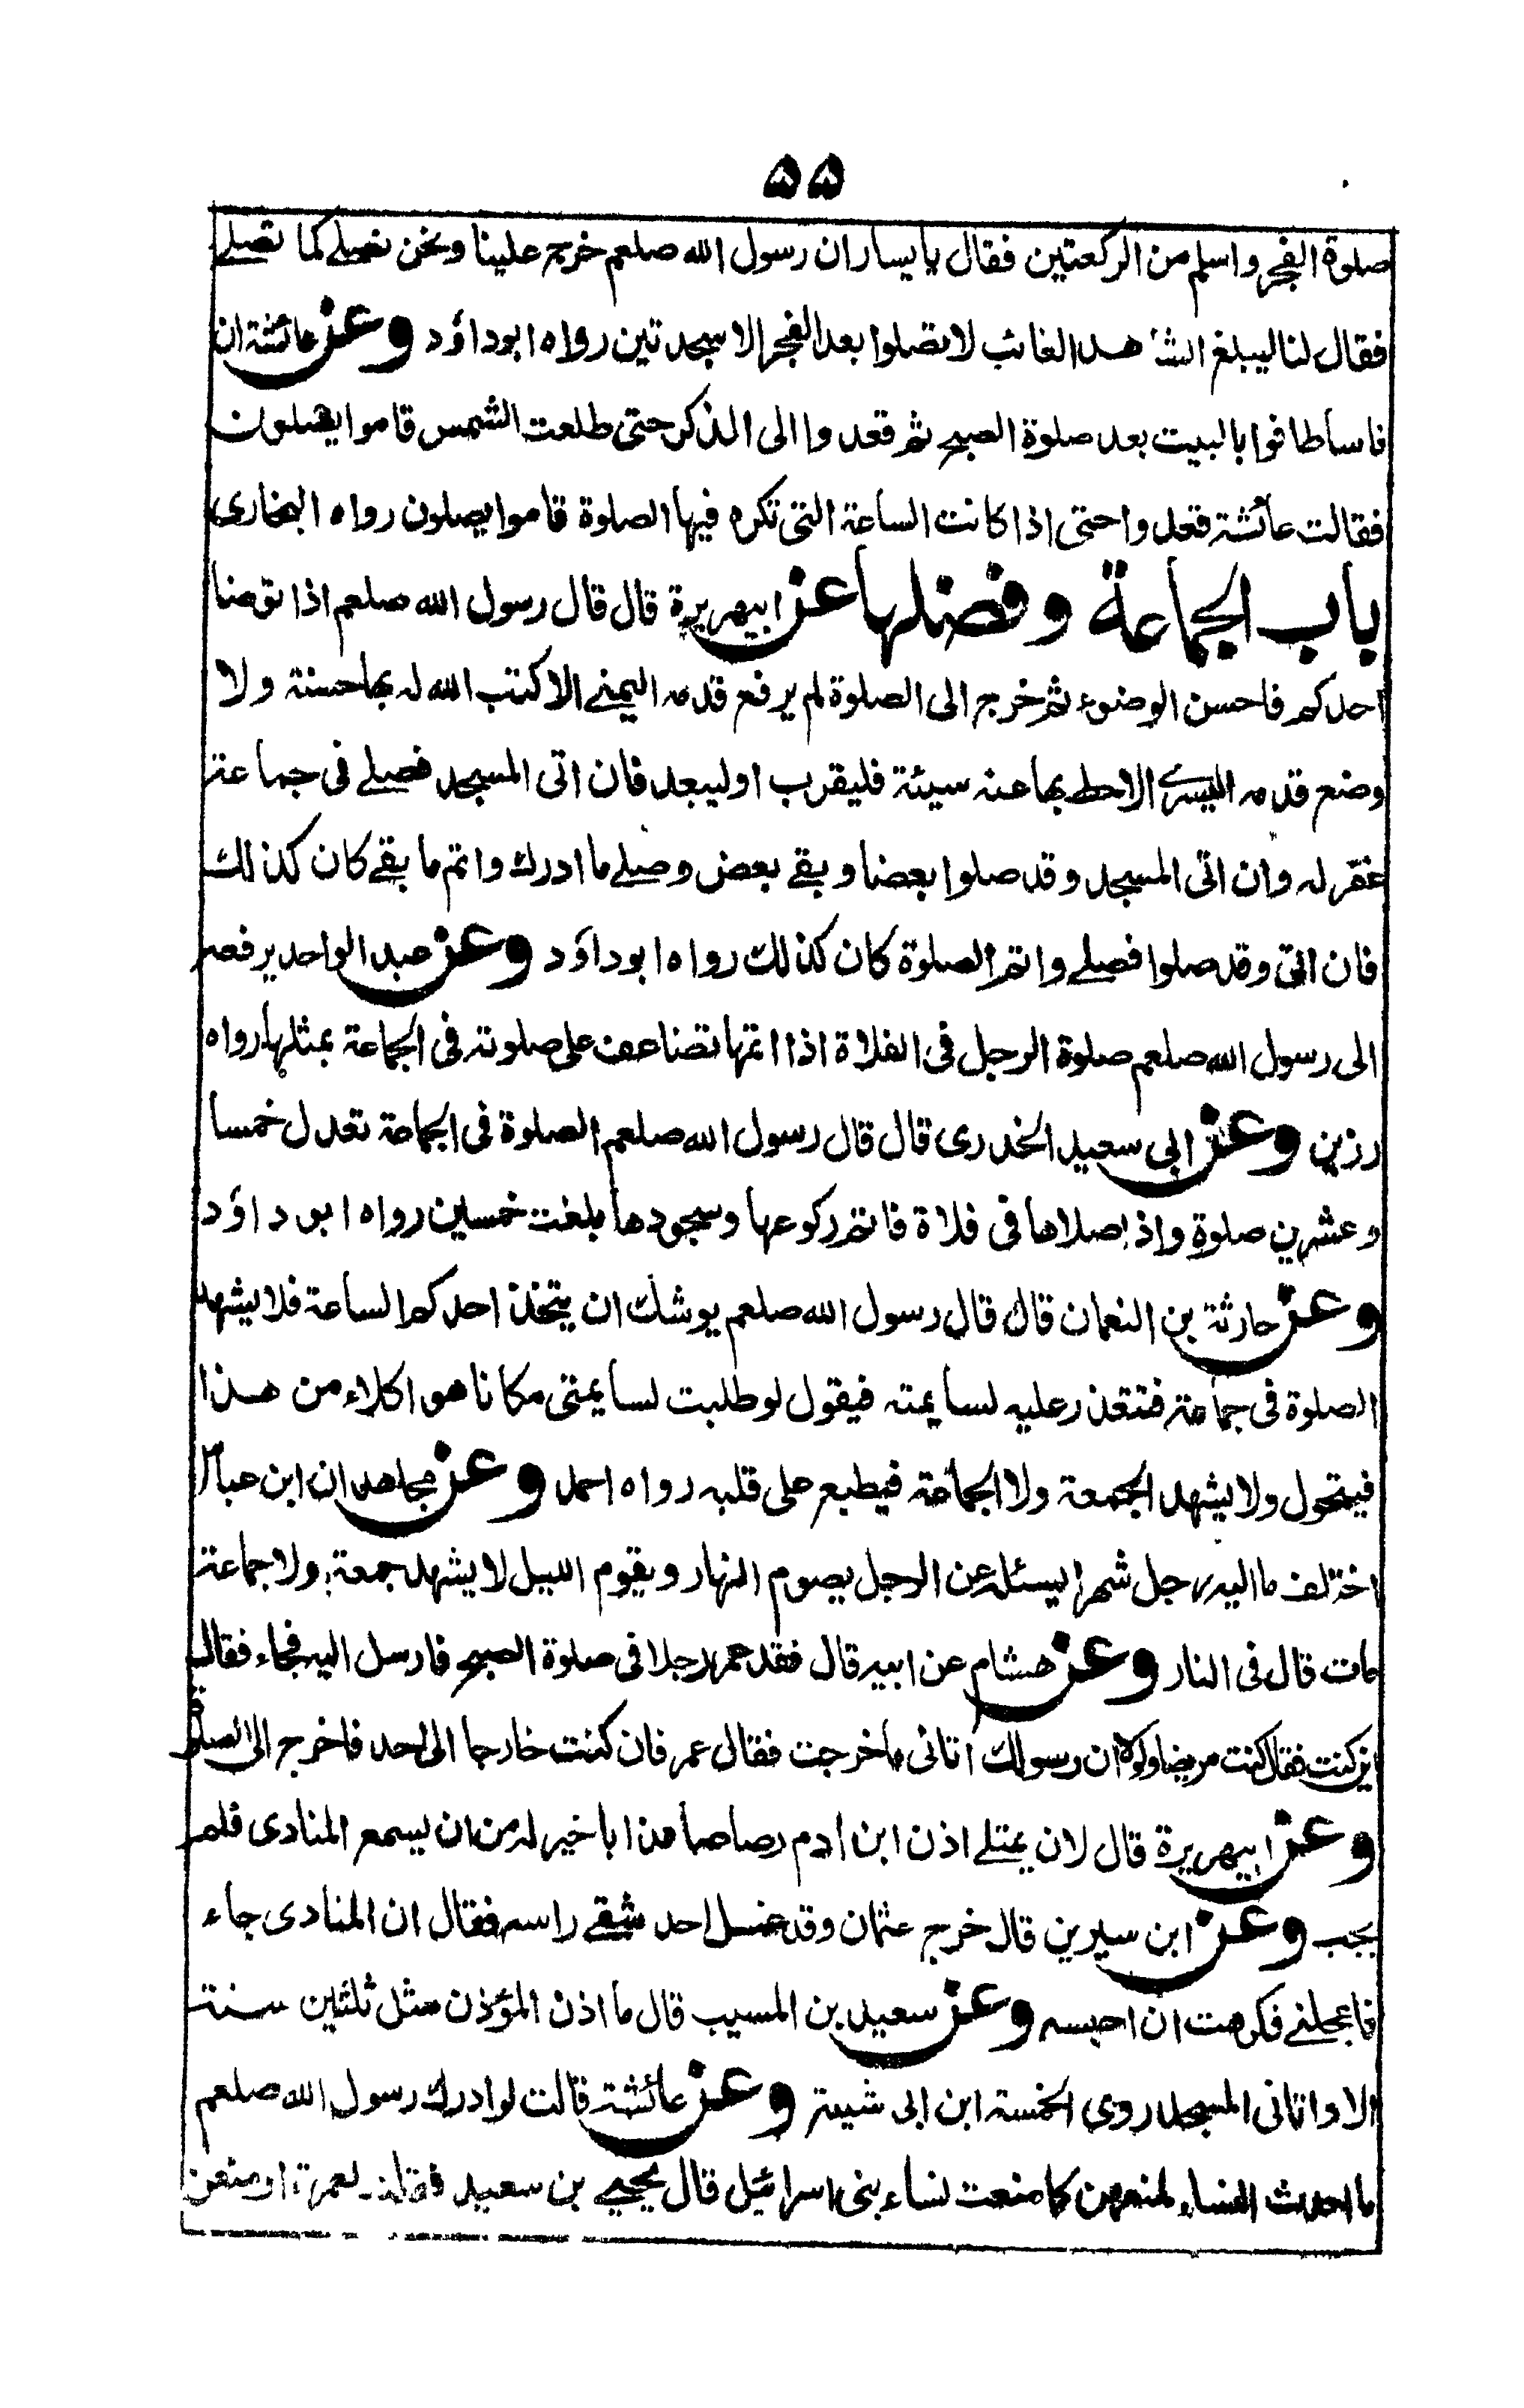 ۵۵
صلوة الفجر واسلم من الركعتين فقال يا يسار ان رسول الله صلعم خرج علينا ونحن نصلے كما تصلے
فقال لنا ليبلغ الشاهد الغائب لا تصلوا بعد الفجر الا سجدتين رواه ابوداؤد وعن عائشة ان
ناسا طافوا بالبيت بعد صلوة الصبح ثم قعدوا الى الذكر حتى طلعت الشمس قاموا يصلون
فقالت عائشة قعدوا حتى اذا كانت الساعة التى تكره فيها الصلوة قاموا يصلون رواه البخارى
باب الجماعة وفضلها عن ابيهريرة قال قال رسول الله صلعم اذا توضا
احدكم فاحسن الوضوء ثم خرج الى الصلوة لم يرفع قدمه اليمنے الا كتب الله له بها حسنة ولا
وضع قدمه اليسرے الا حط بها عنه سيئة فليقرب او ليبعد فان اتى المسجد فصلے فى جماعة
غفر له وان اتى المسجد وقد صلوا بعضا وبقے بعض وصلے ما ادرك واتم ما بقے كان كذلك
فان اتى وقد صلوا فصلے واتم الصلوة كان كذلك رواه ابوداؤد وعن عبد الواحد يرفعه
الى رسول الله صلعم صلوة الرجل فى الفلاة اذا اتمها تضاعف على صلوته فى الجماعة بمثلها رواه
رزين وعن ابى سعيد الخدرى قال قال رسول الله صلعم الصلوة فى الجماعة تعدل خمسا
وعشرين صلوة واذ صلاها فى فلاة فاتم ركوعها وسجودها بلغت خمسين رواه ابوداؤد
وعن حارثة بن النعمان قال قال رسول الله صلعم يوشك ان يتخذ احدكم الساعة فلا يشهد
الصلوة فى جماعة فتتعذر عليه لسايمته فيقول لو طلبت لسايمتى مكانا هو اكلاء من هذا
فيتحول ولا يشهد الجمعة ولا الجماعة فيطبع على قلبه رواه احمد وعن مجاهد ان ابن عباس
اختلف ما اليه رجل شهرا يسئله عن الرجل يصوم النهار ويقوم الليل لا يشهد جمعة ولا جماعة
مات قال فى النار وعن هشام عن ابيه قال فقد عمر رجلا فى صلوة الصبح فارسل اليه فجاء فقال
اين كنت فقال كنت مريضا ولولا ان رسولك اتانى ما خرجت فقال عمر فان كنت خارجا الى احد فاخرج الى الصلوة
وعن ابيهريرة قال لان يمتلے اذن ابن ادم رصاصا مذابا خير له من ان يسمع المنادى فلم
يجب وعن ابن سيرين قال خرج عثمان وقد غسل احد شقے راسه فقال ان المنادى جاء
فاعجلنے فكرهت ان احبسه وعن سعيد بن المسيب قال ما اذن المؤذن منذ ثلثين سنة
الا وانا فى المسجد روى الخمسة ابن ابى شيبة وعن عائشة قالت لو ادرك رسول الله صلعم
ما احدث النساء لمنعهن كما منعت نساء بنى اسرائيل قال يحيے بن سعيد فقلت لعمرة او منعن